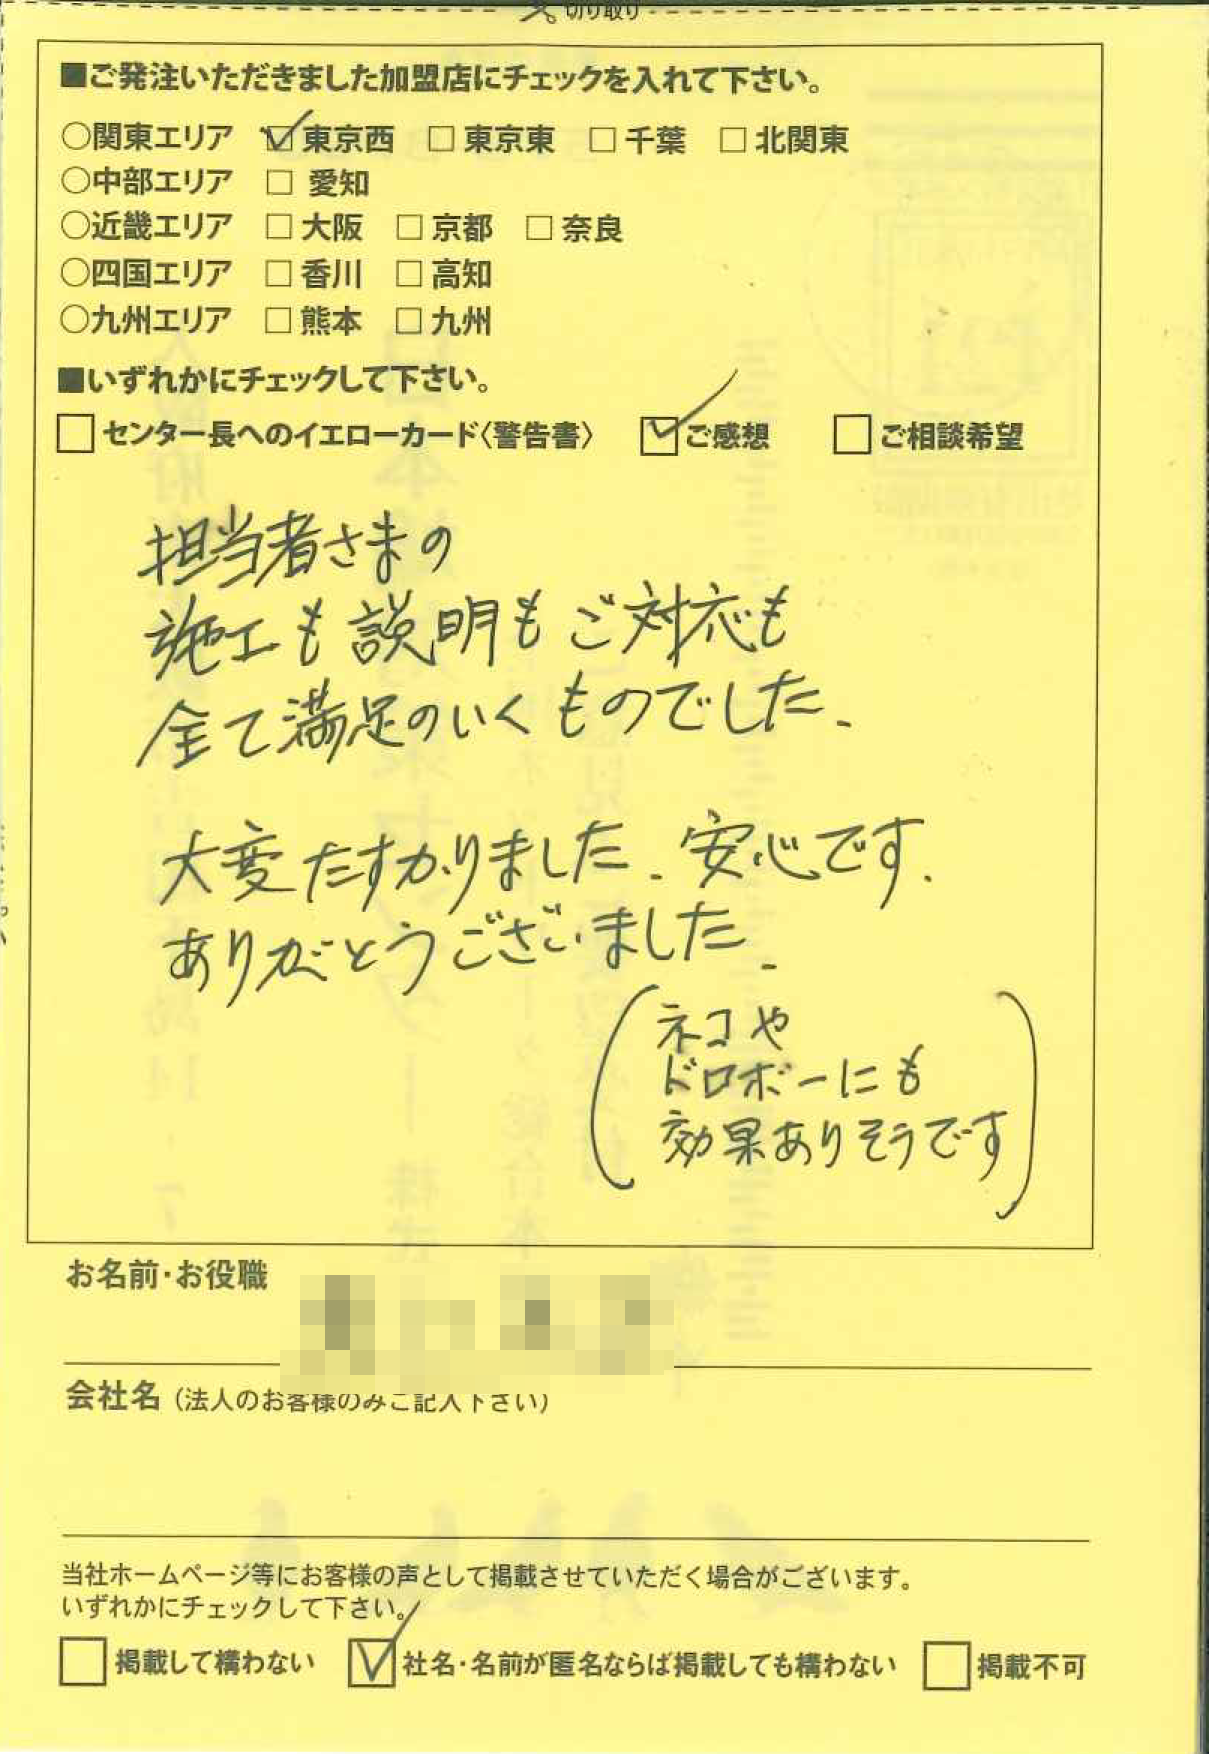 切り取り
■ご発注いただきました加盟店にチェックを入れて下さい。
○関東エリア ☑東京西 □東京東 □千葉 □北関東
○中部エリア □愛知
○近畿エリア □大阪 □京都 □奈良
○四国エリア □香川 □高知
○九州エリア □熊本 □九州
■いずれかにチェックして下さい。
□センター長へのイエローカード〈警告書〉 ☑ご感想 □ご相談希望
担当者さまの
施工も説明もご対応も
全て満足のいくものでした.
大変たすかりました.安心です.
ありがとうございました.
(ネコや
ドロボーにも
効果ありそうです)
お名前・お役職
会社名(法人のお客様のみご記入下さい)
当社ホームページ等にお客様の声として掲載させていただく場合がございます。
いずれかにチェックして下さい。
□掲載して構わない ☑社名・名前が匿名ならば掲載しても構わない □掲載不可